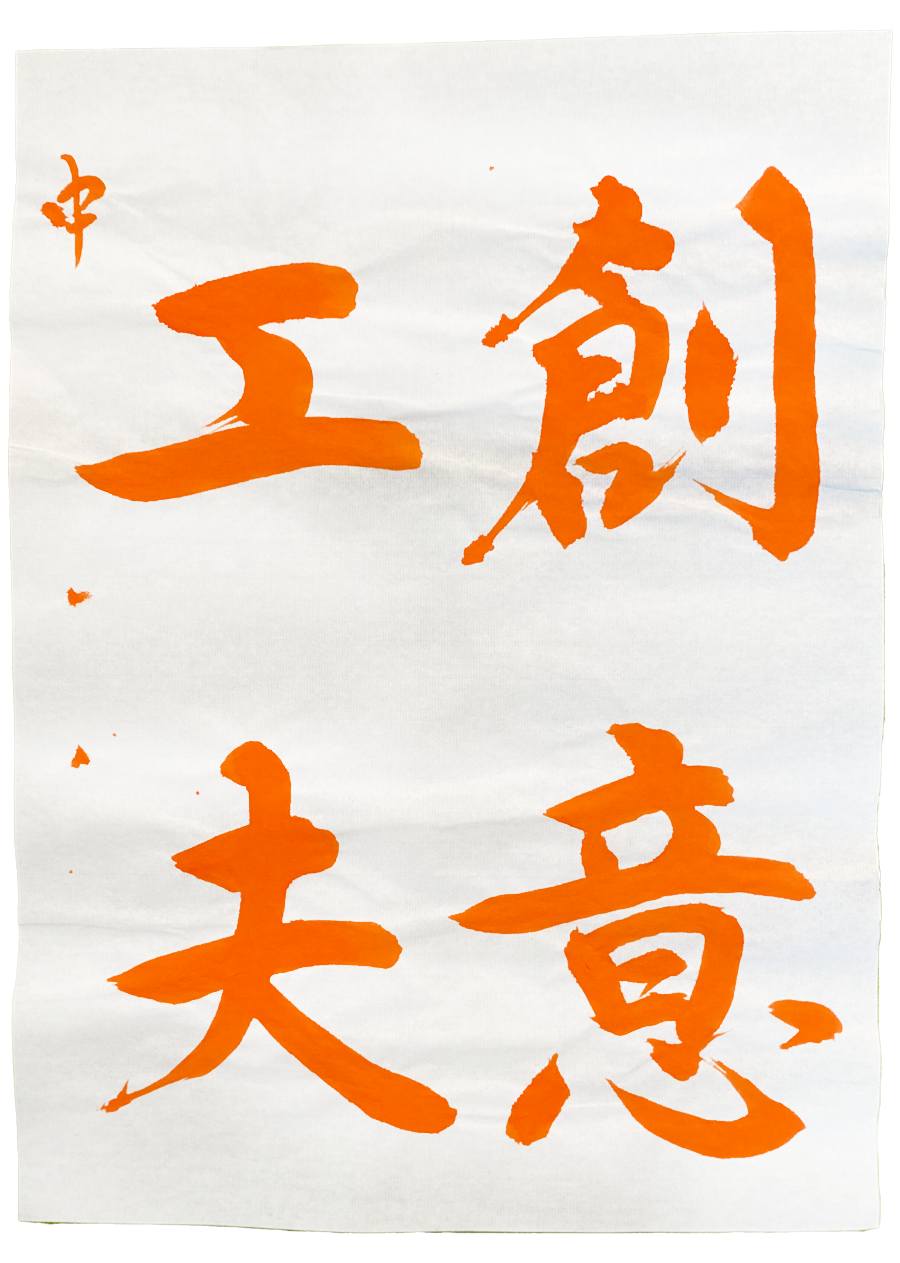 創意
工夫
中